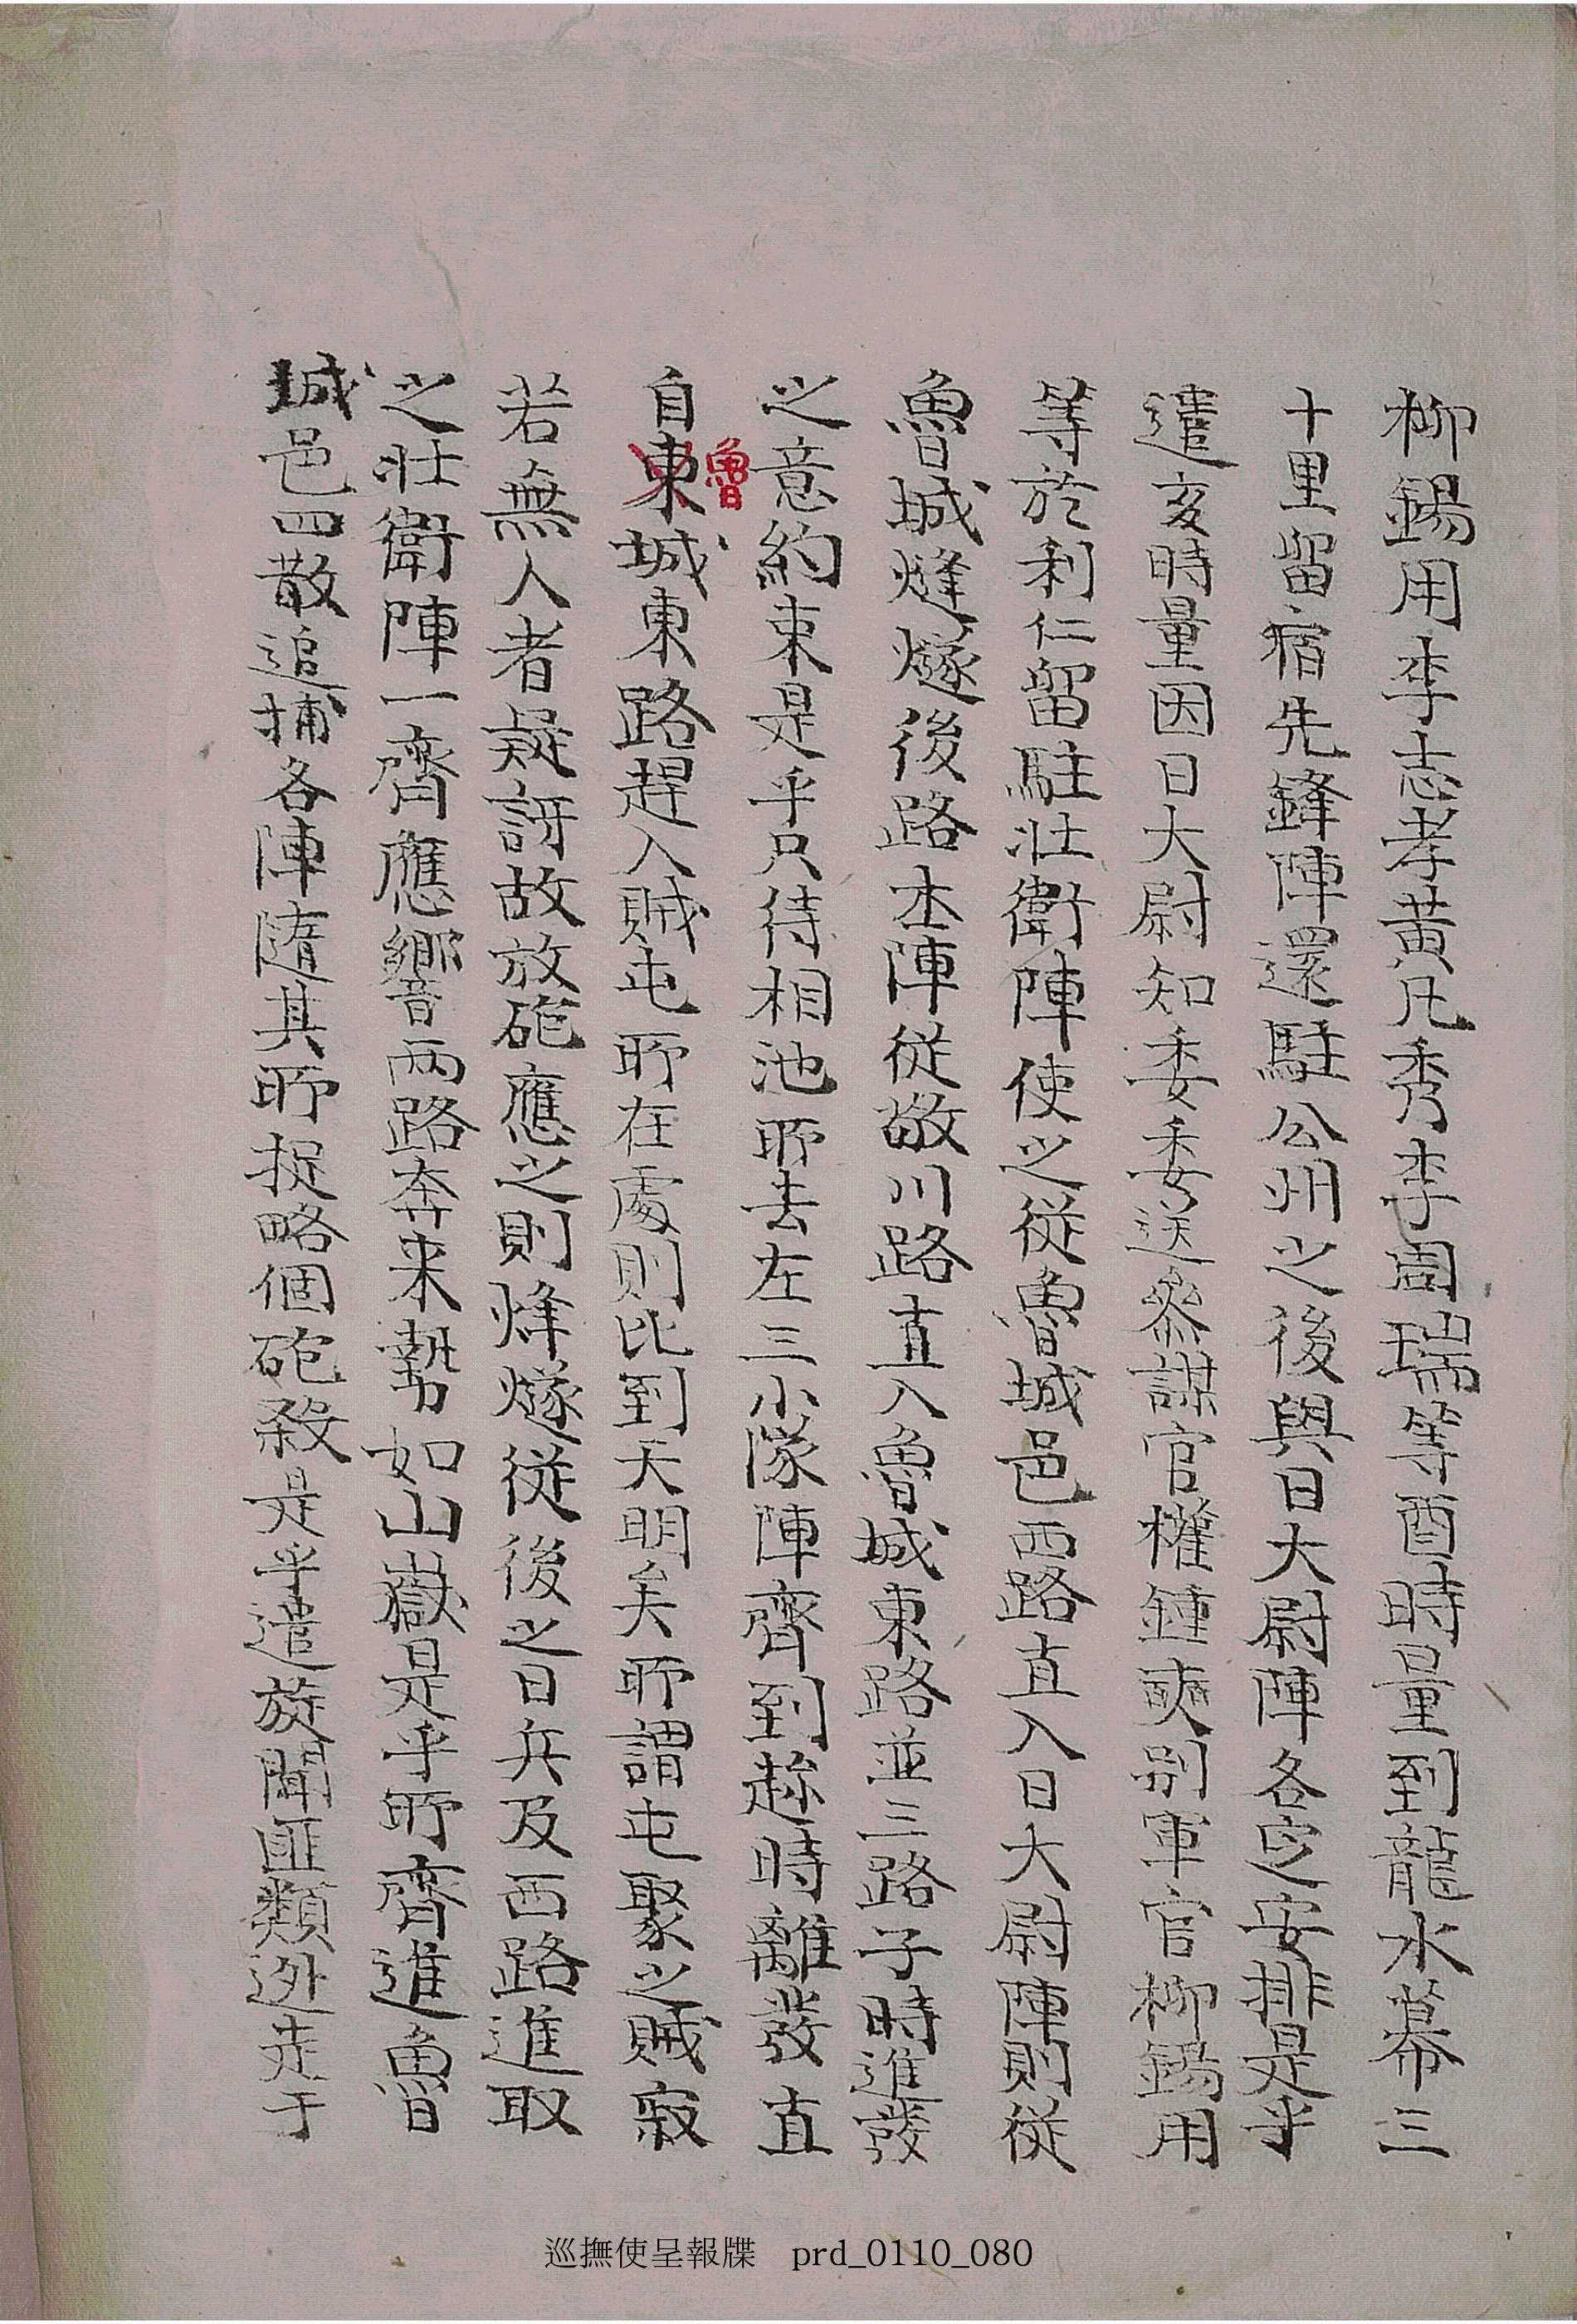 柳錫用李志孝黃凡秀李周瑞等酉時量到龍水幕三
十里留宿先鋒陣還駐公州之後與日大尉陣各定安排是乎
遣亥時量因日大尉知委委送參謀官權鍾奭別軍官柳錫用
等於利仁留駐壯衛陣使之從魯城邑西路直入日大尉陣則從
魯城烽燧後路本陣從敬川路直入魯城東路並三路子時進發
之意約束是乎只待相池所去左三小隊陣齊到趁時離發直
自東魯城東路趕入賊屯所在處則比到天明矣所謂屯聚之賊寂
若無人者疑訝故放砲應之則烽燧從後之日兵及西路進取
之壯衛陣一齊應響兩路奔來勢如山嶽是乎所齊進魯
城邑四散追捕各陣隨其所捉略個砲殺是乎遣旋聞匪類迯走于
巡撫使呈報牒 prd_0110_080